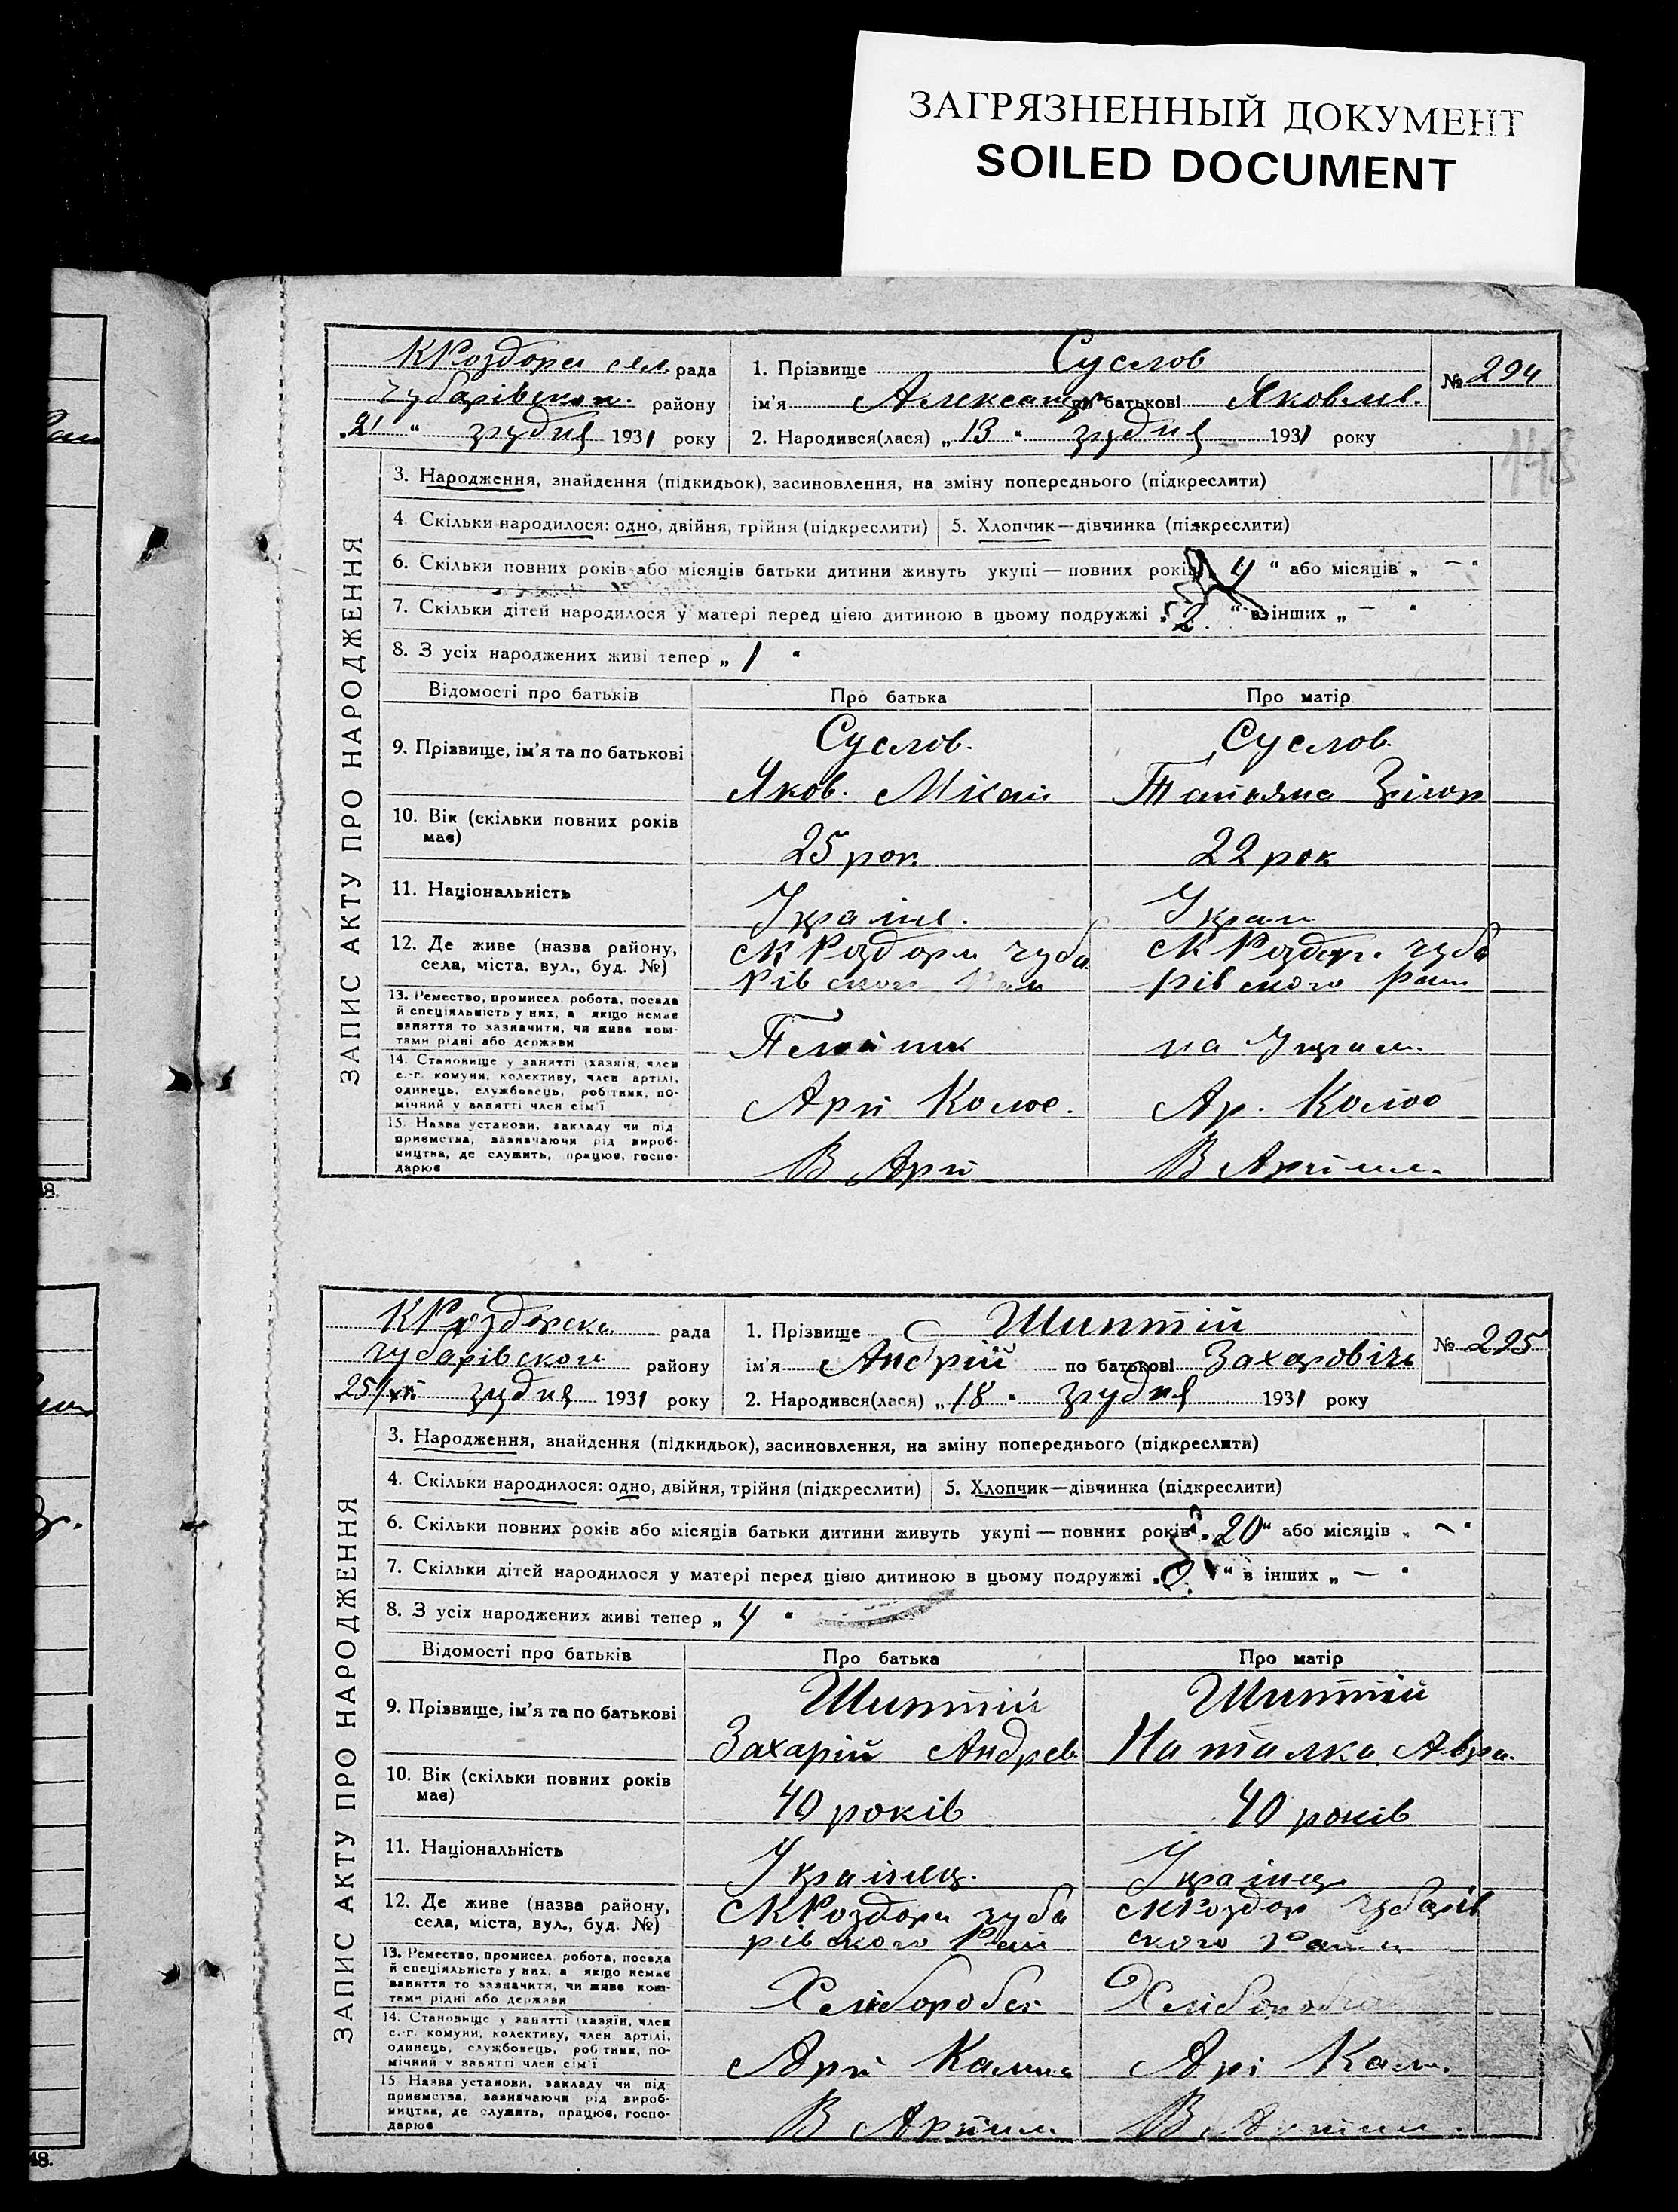 ЗАГРЯЗНЕННЫЙ ДОКУМЕНТ
SOILED DOCUMENT
КРоздори сел рада
Чубарівськ. району
„21“ грудня 1931 року
1. Прізвище Суслов
ім'я Александр по батькові Яковлев.
2. Народився(лася) „13“ грудня 1931 року
№ 294
148
ЗАПИС АКТУ ПРО НАРОДЖЕННЯ
3. Народження, знайдення (підкидьок), засиновлення, на зміну попереднього (підкреслити)
4. Скільки народилося: одно, двійня, трійня (підкреслити) 5. Хлопчик—дівчинка (підкреслити)
6. Скільки повних років або місяців батьки дитини живуть укупі — повних років „4“ або місяців „—“
7. Скільки дітей народилося у матері перед цією дитиною в цьому подружжі „2“ в інших „—“
8. З усіх народжених живі тепер „1“
Відомості про батьків Про батька Про матір
9. Прізвище, ім'я та по батькові
Суслов. Суслов.
Яков. Міхай Татьяна
10. Вік (скільки повних років
має)
25 рок 22 рок
11. Національність
Україне. Украін
12. Де живе (назва району,
села, міста, вул., буд. №)
с К Роздори Чуба с К Роздор. Чуба
рівского рівского Рай
13. Ремество, промисел, робота, посада
й спеціяльність у них, а якщо немає
заняття то зазначити, чи живе кош-
тами рідні або держави
на
14. Становище у занятті (хазяїн, член
с.-г. комуни, колективу, член артілі,
одинець, службовець, робітник, по-
мічний у занятті член сім'ї
Арті Колгос. Ар. Колго
15. Назва установи, закладу чи під-
приємства, зазначаючи рід вироб-
ництва, де служить, працює, госпо-
дарює
В Арті В Артіли.
КРоздорськ рада
Чубарівского району
25/XII грудня 1931 року
1. Прізвище Шиптій
ім'я Андрій по батькові Захаровіч
2. Народився(лася) „18“ грудня 1931 року
№ 295
ЗАПИС АКТУ ПРО НАРОДЖЕННЯ
3. Народження, знайдення (підкидьок), засиновлення, на зміну попереднього (підкреслити)
4. Скільки народилося: одно, двійня, трійня (підкреслити) 5. Хлопчик—дівчинка (підкреслити)
6. Скільки повних років або місяців батьки дитини живуть укупі — повних років „20“ або місяців „—“
7. Скільки дітей народилося у матері перед цією дитиною в цьому подружжі в інших „—“
8. З усіх народжених живі тепер „4“
Відомості про батьків Про батька Про матір
9. Прізвище, ім'я та по батькові
Шиптій Шиптій
Захарій Андрев Наталка Авра.
10. Вік (скільки повних років
має)
40 років 40 років
11. Національність
Українец. Українц
12. Де живе (назва району,
села, міста, вул., буд. №)
с К Роздори Чуба с К Роздор Чубарів
рівского Рай ского Райн
13. Ремество, промисел, робота, посада
й спеціяльність у них, а якщо немає
заняття то зазначити, чи живе кош-
тами рідні або держави
Хліборобст
14. Становище у занятті (хазяїн, член
с.-г. комуни, колективу, член артілі,
одинець, службовець, робітник, по-
мічний у занятті член сім'ї
Арті Арі
15. Назва установи, закладу чи під-
приємства, зазначаючи рід вироб-
ництва, де служить, працює, госпо-
дарює
В Артіли В Артили.
48.